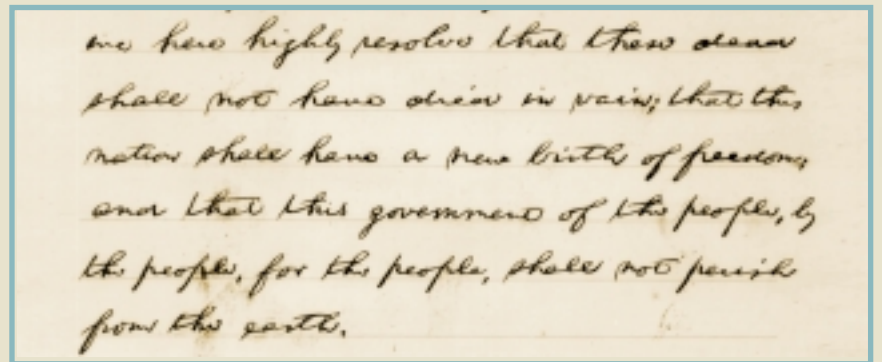 we here highly resolve that these dead
shall not have died in vain; that this
nation shall have a new birth of freedom;
and that this government of the people, by
the people, for the people, shall not perish
from the earth.